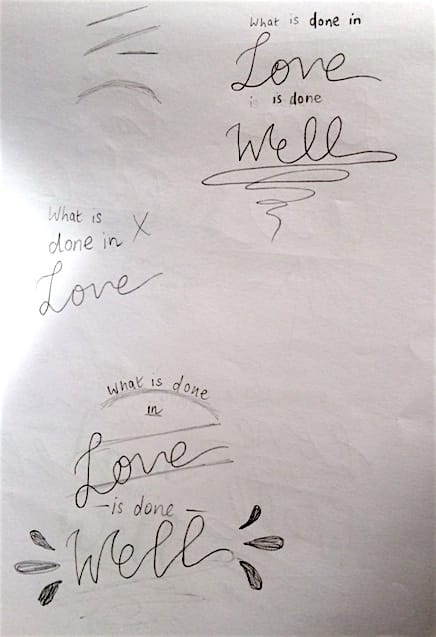 What is done in
Love
is done
Well
What is
done in X
Love
What is done
in
Love
— is done —
Well